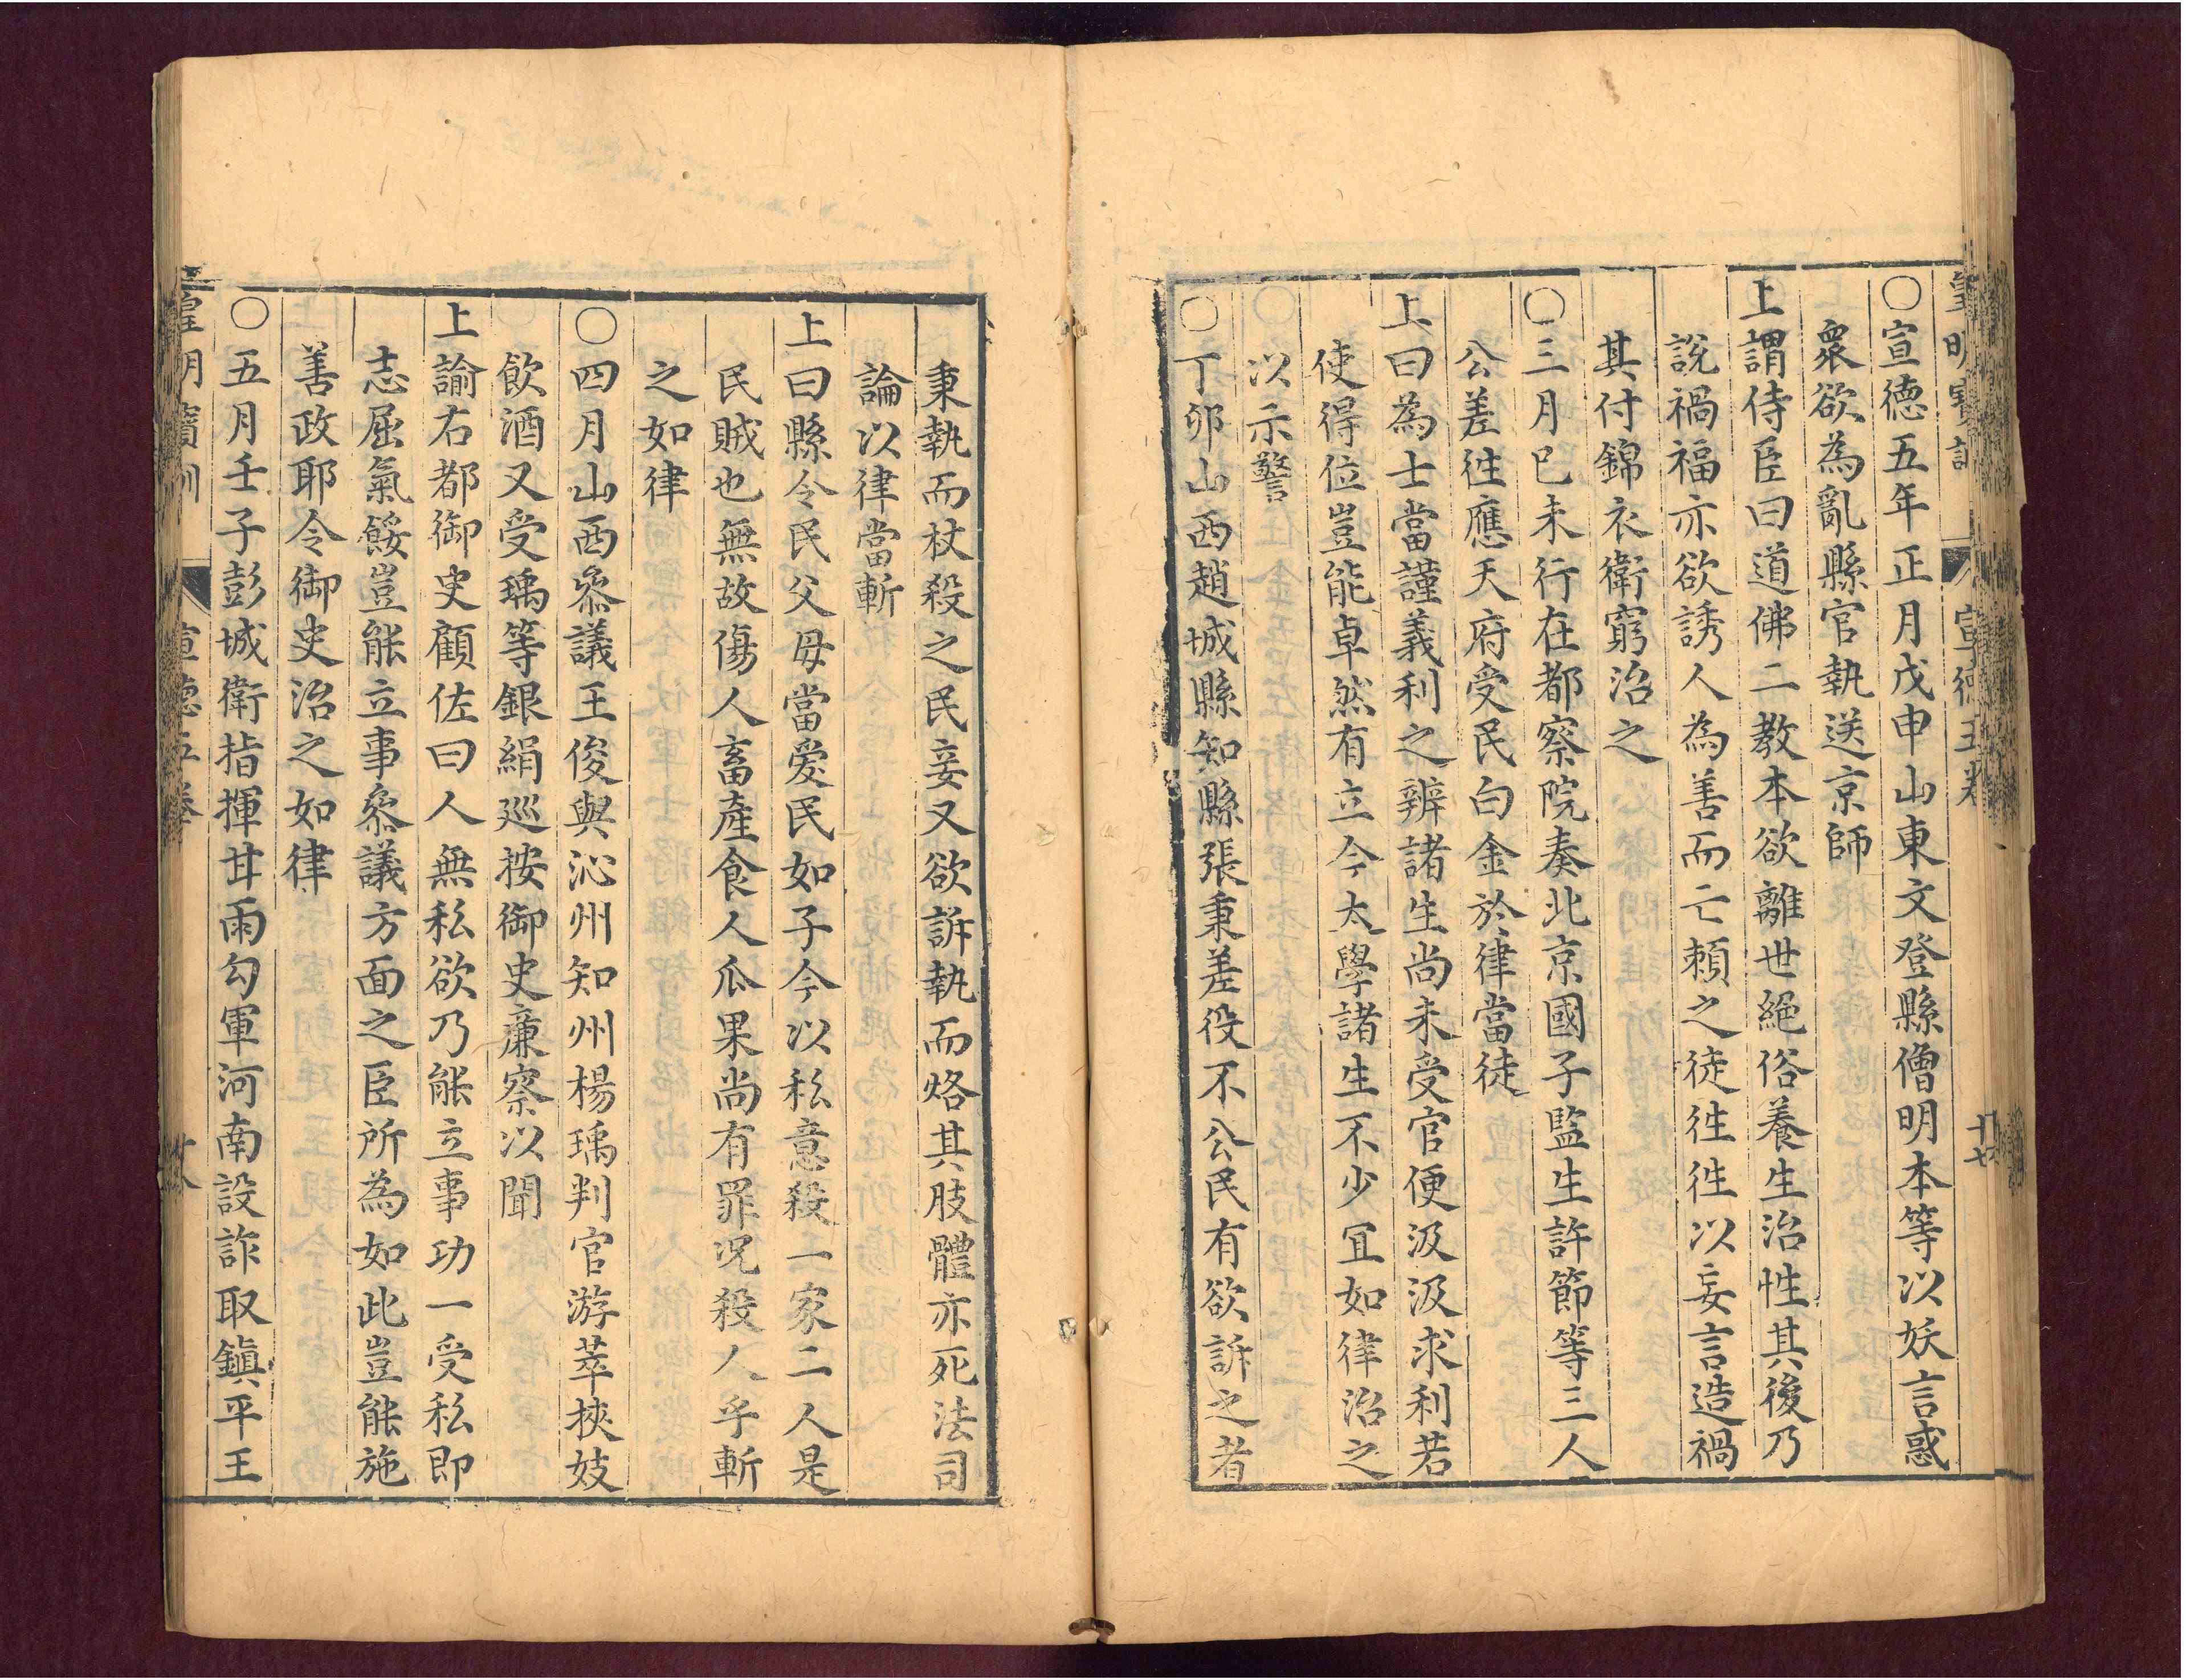 皇明寶訓 宣德五卷 廿七
○宣德五年正月戊申山東文登縣僧明本等以妖言惑
衆欲為亂縣官執送京師
上謂侍臣曰道佛二教本欲離世絕俗養生治性其後乃
說禍福亦欲誘人為善而亡賴之徒徃徃以妄言造禍
其付錦衣衛窮治之
○三月巳未行在都察院奏北京國子監生許節等三人
公差徃應天府受民白金於律當徒
上曰為士當謹義利之辨諸生尚未受官便汲汲求利若
使得位豈能卓然有立今太學諸生不少冝如律治之
以示警
○丁卯山西趙城縣知縣張秉差役不公民有欲訴之者
秉執而杖殺之民妾又欲訴執而烙其肢體亦死法司
論以律當斬
上曰縣令民父母當愛民如子今以私意殺一家二人是
民賊也無故傷人畜產食人瓜果尚有罪况殺人乎斬
之如律
○四月山西叅議王俊與沁州知州楊瑀判官游萃挾妓
飲酒又受瑀等銀絹廵按御史廉察以聞
上諭右都御史顧佐曰人無私欲乃能立事功一受私即
志屈氣餒豈能立事叅議方面之臣所為如此豈能施
善政耶令御史治之如律
○五月壬子彭城衛指揮甘雨勾軍河南設詐取鎮平王
皇明寶訓 宣德五卷